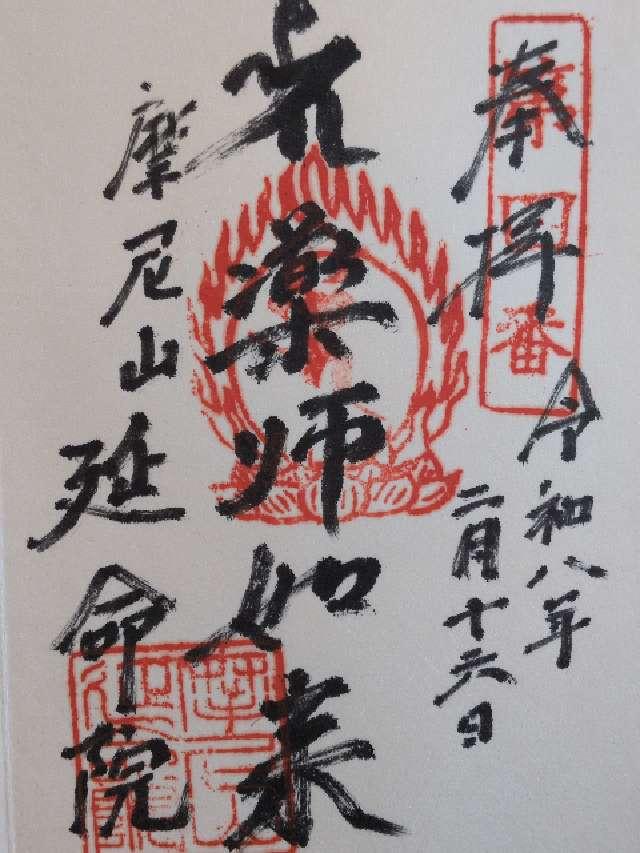 奉拝
第四番
令和八年
二月十六日
薬師如来
摩尼山
延命院